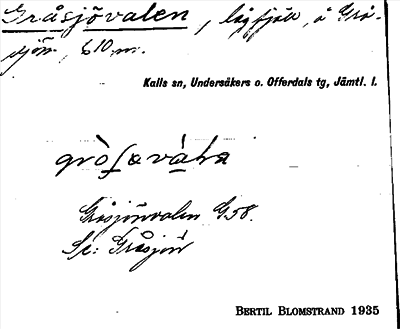 Gråsjövalen, lågfjäll, å Grå-
sjön, 610 m.
Kalls sn, Undersåkers o. Offerdals tg, Jämtl. l.
Gråsjövalen G58.
Se: Gråsjön
BERTIL BLOMSTRAND 1935